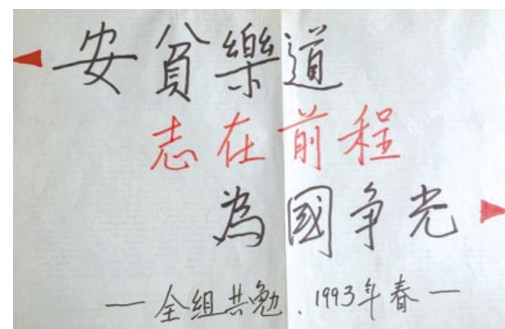 安貧樂道
志在前程
為國争光
— 全组共勉．1993年春 —